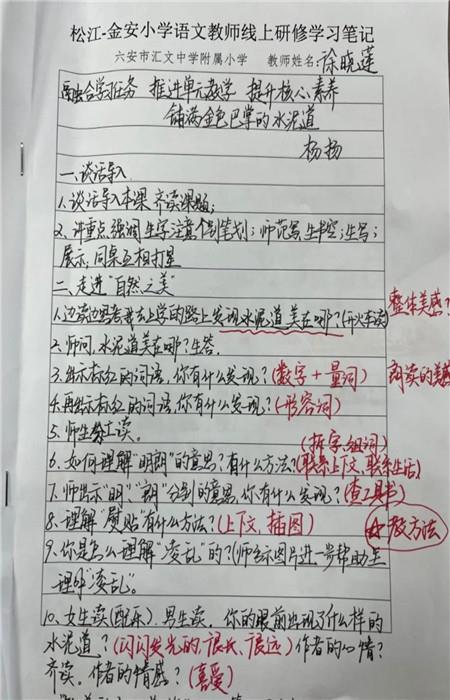 松江-金安小学语文教师线上研修学习笔记
六安市汇文中学附属小学 教师姓名:徐晓莲
融合学习任务 推进单元教学 提升核心素养
铺满金色巴掌的水泥道
杨扬
一、谈话导入
1.谈话导入本课,齐读课题;
2、讲重点,强调生字注意个别笔划;师范写,生书空;生写;
展示,同桌互相打星
二、走进“自然之美”
1.边读边思考我去上学的路上发现水泥道美在哪?(开火车读) 整体美感?
2.师问,水泥道美在哪?生答.
3.出示标红的词语,你有什么发现?(数字+量词) 朗读的美感
4.再出示标红的词语,你有什么发现?(形容词)
5.师生分读.
(拆字组词)
6.如何理解“明朗”的意思?有什么方法?(联系上下文,联系生活)
7.师出示“明”、“朗”分别的意思,你有什么发现?(查工具书)
8.理解“熨贴”有什么方法?(上下文,插图) ☆教方法
9.你是怎么理解“凌乱”的?(师出示图片进一步帮助生
理解“凌乱”.
10.女生读(配乐).男生读. 你的眼前出现了什么样的
水泥道?(闪闪发光的、很长、很远)作者的心情?
齐读.作者的情感?(喜爱)